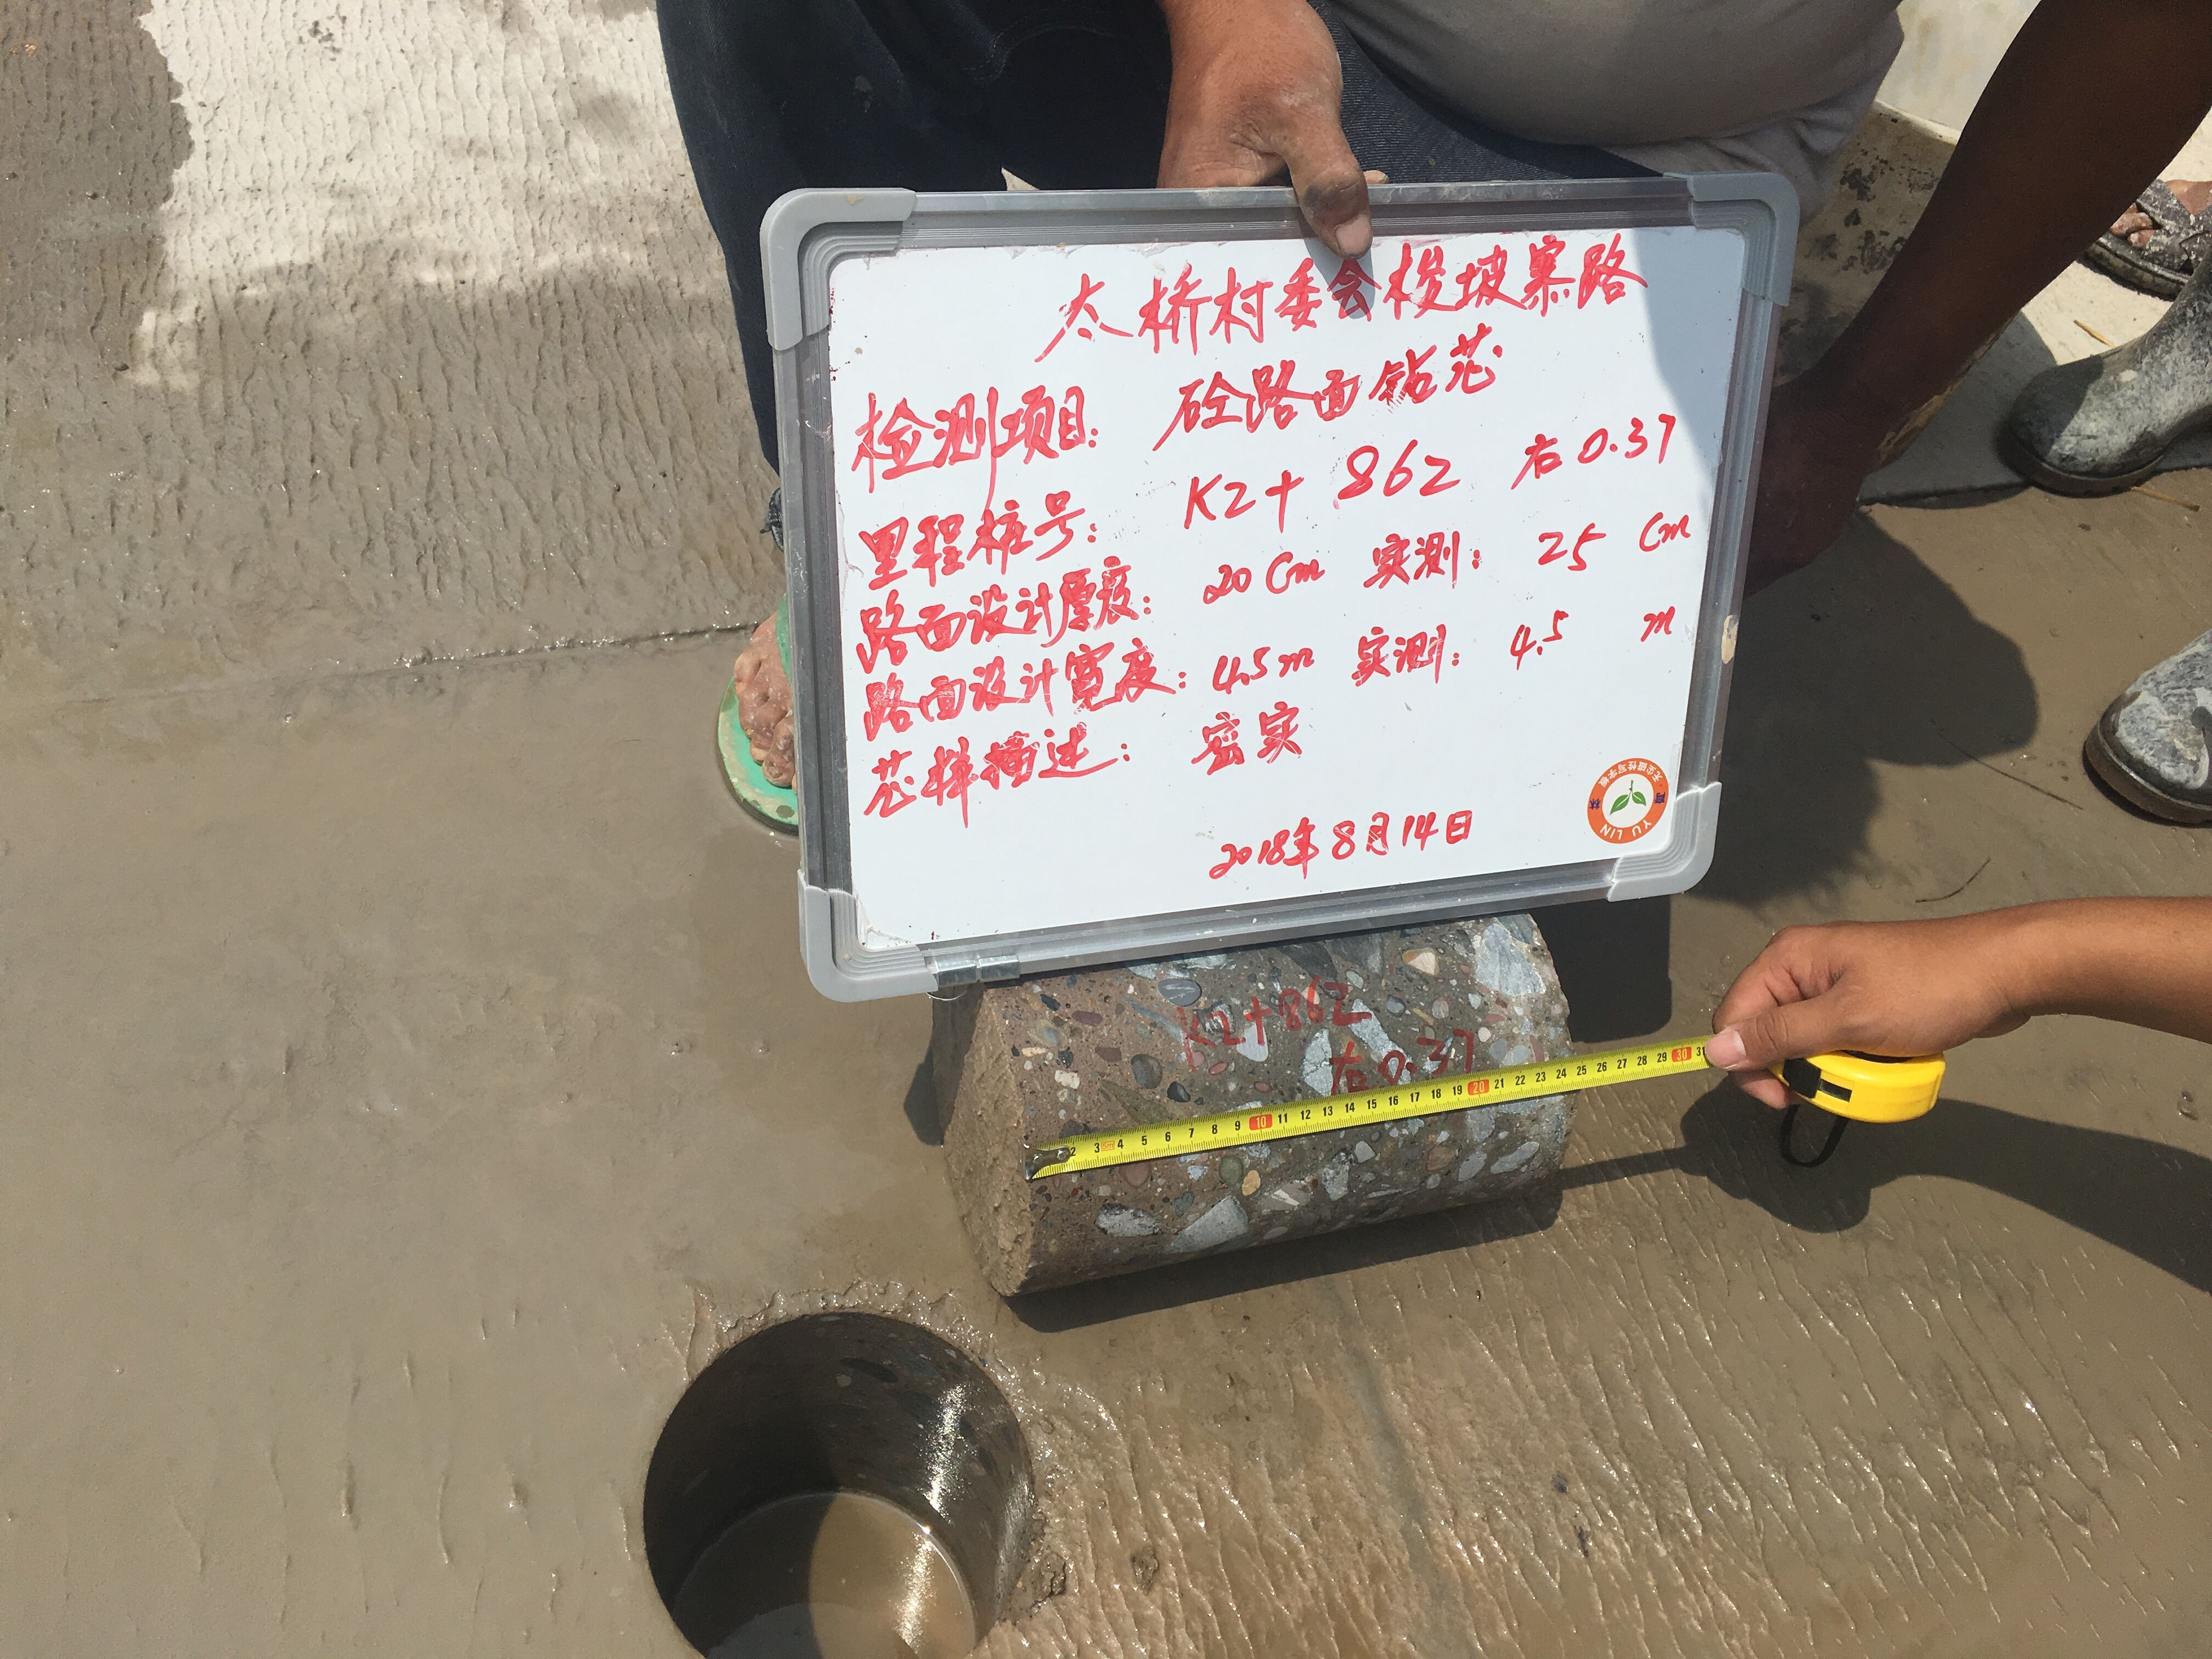 太桥村委会梭坡寨路
检测项目: 砼路面钻芯
里程桩号: K2+862 右0.37
路面设计厚度: 20cm 实测: 25 cm
路面设计宽度: 4.5m 实测: 4.5 m
芯样描述: 密实
2018年8月14日
YU LIN
K2+862
右0.37
2 3 4 5 6 7 8 9 10 11 12 13 14 15 16 17 18 19 20 21 22 23 24 25 26 27 28 29 30 31